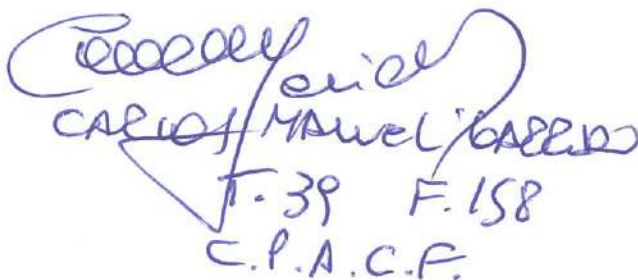 CARLOS MANUEL GARRIDO
T. 39 F. 158
C.P.A.C.F.